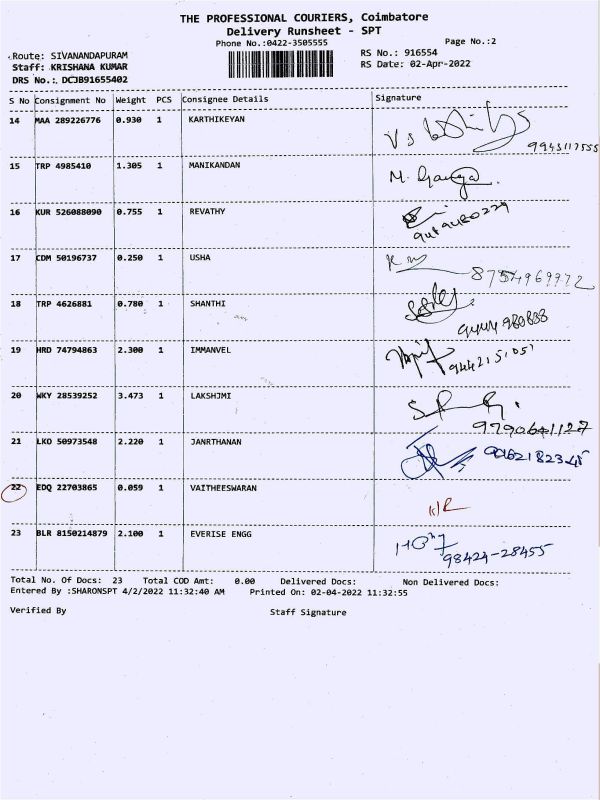 THE PROFESSIONAL COURIERS, Coimbatore
Delivery Runsheet - SPT
Phone No.:0422-3505555
Page No.:2
Route: SIVANANDAPURAM
RS No.: 916554
Staff: KRISHANA KUMAR
RS Date: 02-Apr-2022
DRS No.: DCJB91655402
S No Consignment No Weight PCS Consignee Details Signature
14 MAA 289226776 0.930 1 KARTHIKEYAN
15 TRP 4985410 1.305 1 MANIKANDAN
M.
16 KUR 526088090 0.755 1 REVATHY
17 CDM 50196737 0.250 1 USHA
8754969772
18 TRP 4626881 0.780 1 SHANTHI
9444 980888
19 HRD 74794863 2.300 1 IMMANVEL
20 WKY 28539252 3.473 1 LAKSHJMI
9790641127
21 LKO 50973548 2.220 1 JANRTHANAN
22 EDQ 22703865 0.059 1 VAITHEESWARAN
23 BLR 8150214879 2.100 1 EVERISE ENGG
98424-28455
Total No. Of Docs: 23 Total COD Amt: 0.00 Delivered Docs: Non Delivered Docs:
Entered By :SHARONSPT 4/2/2022 11:32:40 AM Printed On: 02-04-2022 11:32:55
Verified By Staff Signature